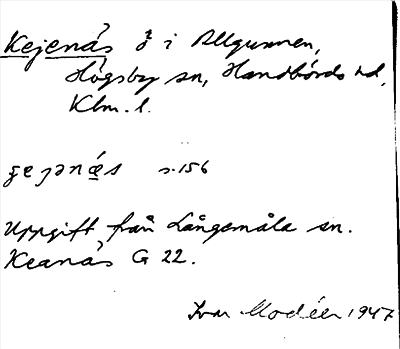 Kejenäs ö i Allgunnen,
Högsby sn, Handbörds hd,
Klm. l.
s. 156
Uppgift från Långemåla sn.
Keanäs G 22.
Ivar Modéer 1947